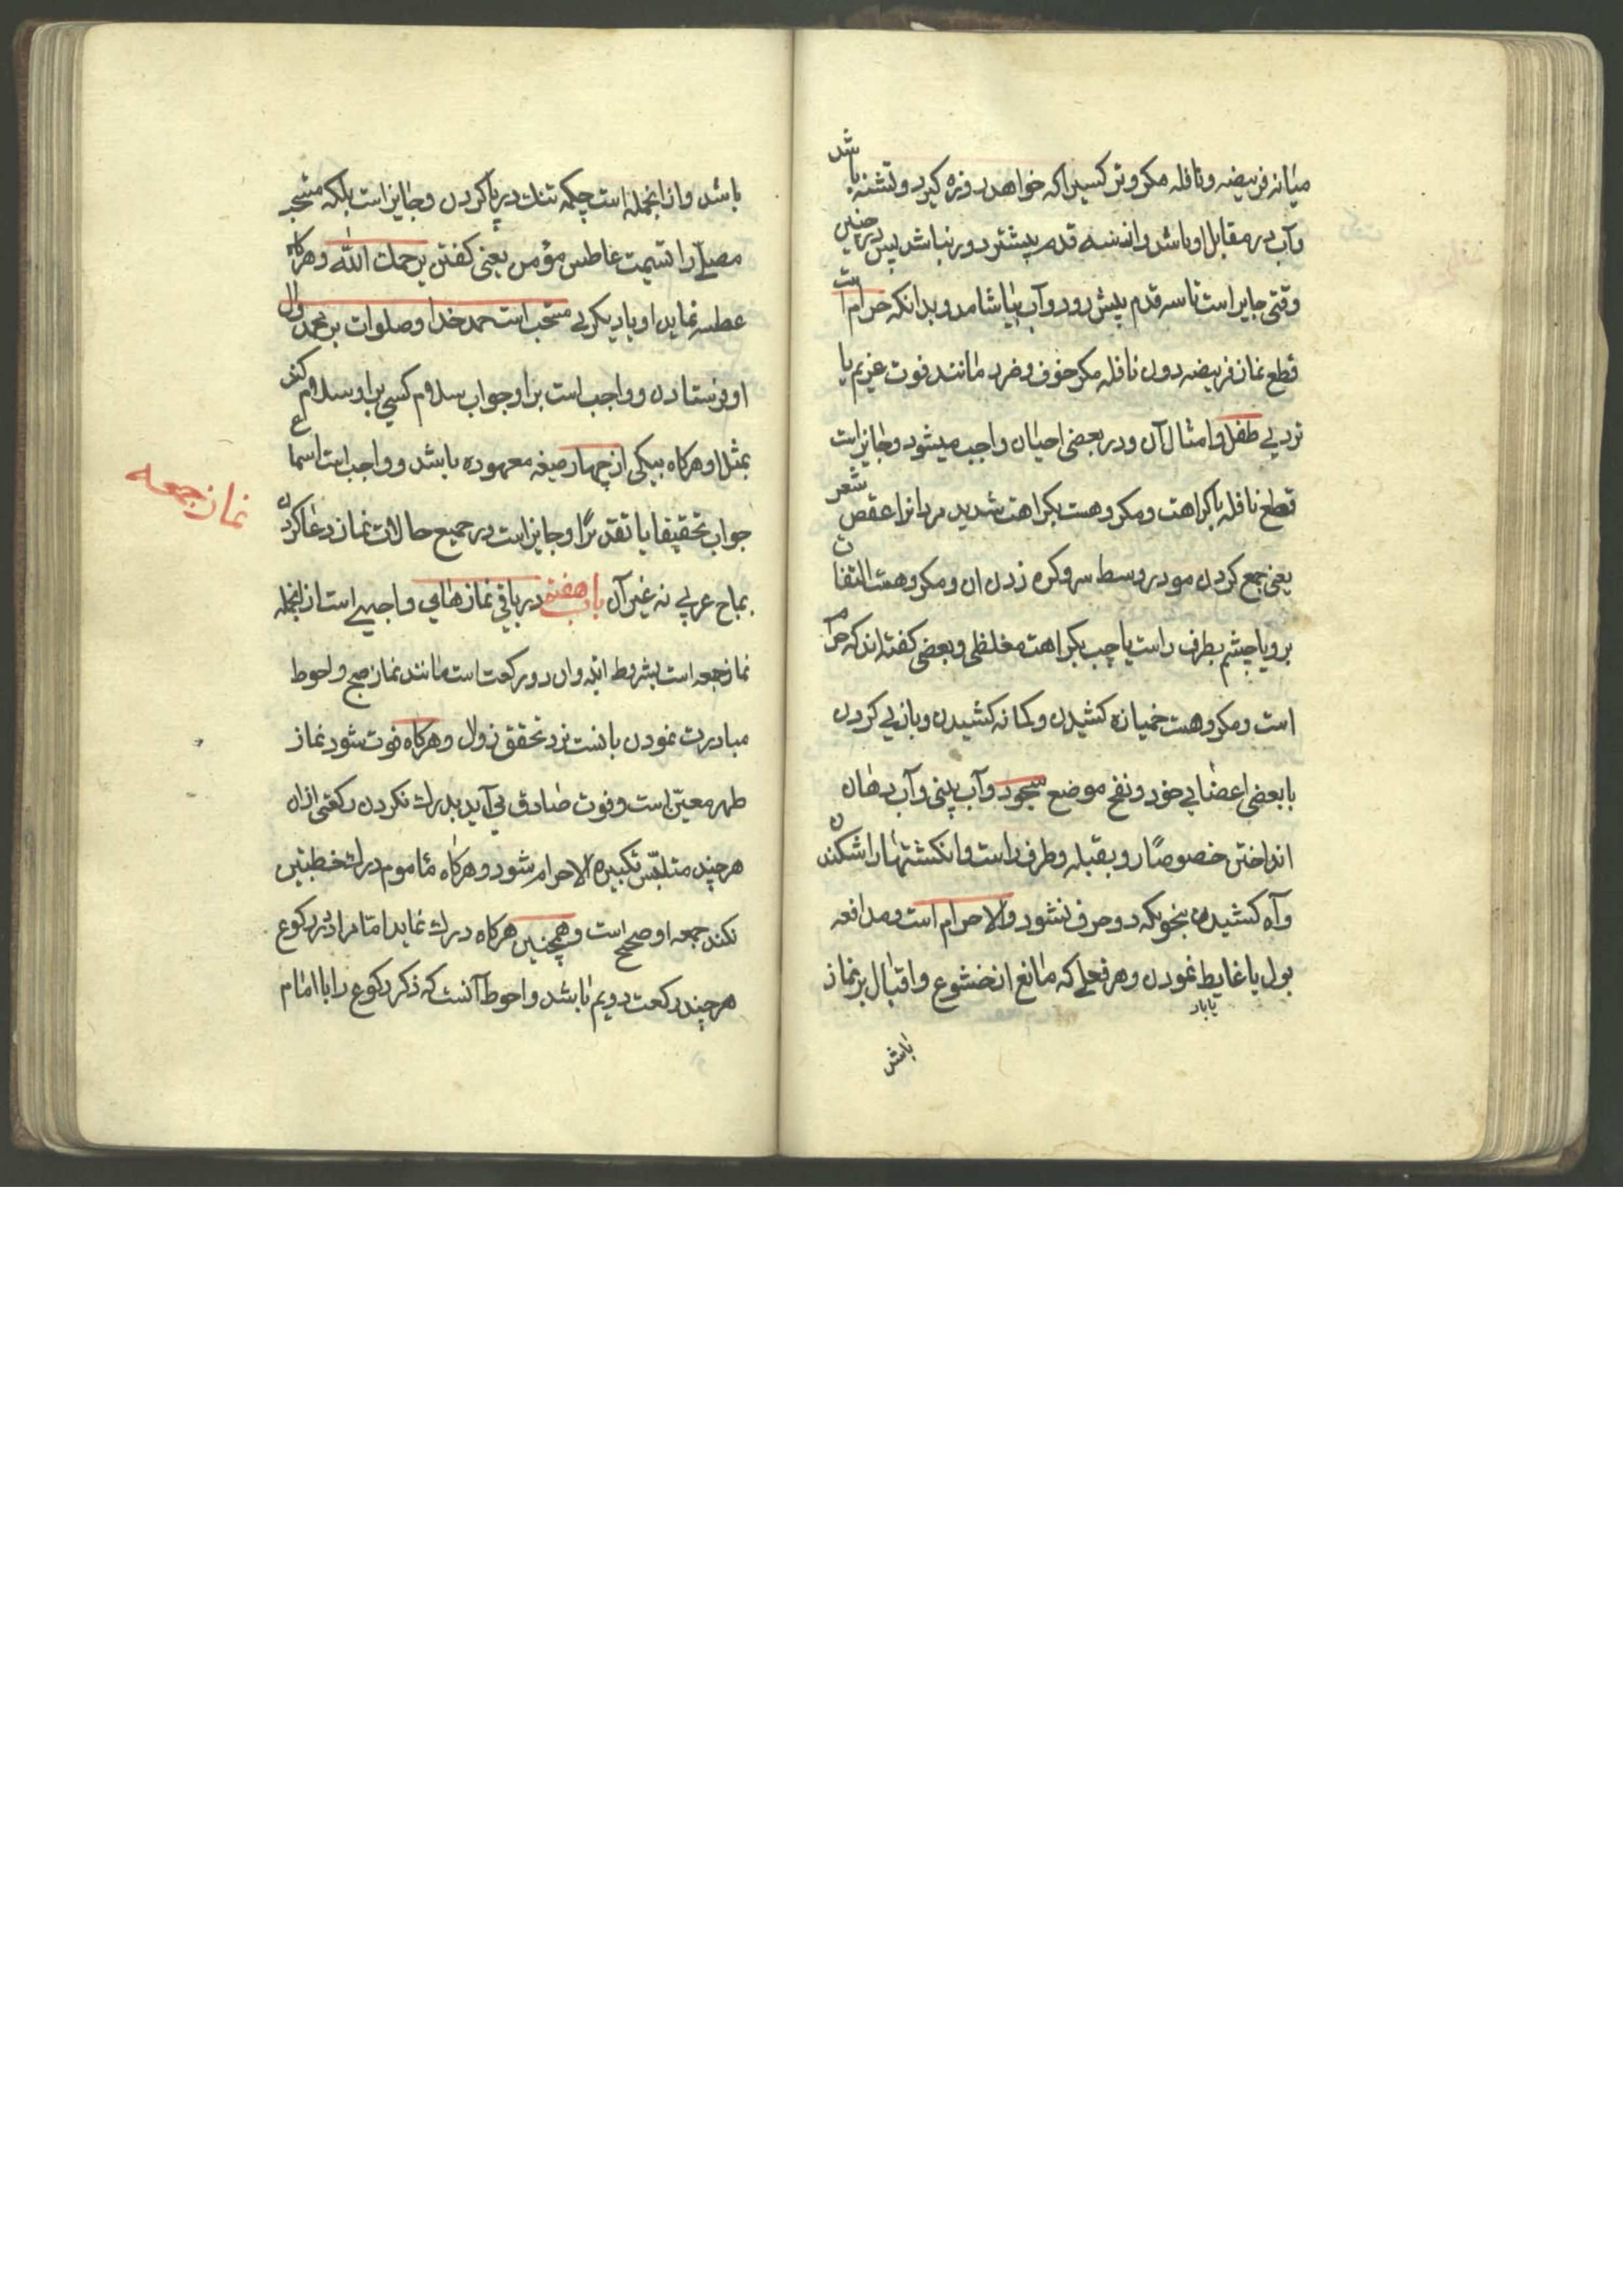 میانه فریضه و نافله مکر وتر کسیرا که خواهد روزه کیرد و تشنه باشد
و آب در مقابل او باشد و از سه قدم بیشتر دور نباشد پس در چنین
وقتی جایز است تا سه قدم پیش رود و آب بیاشامد و بدانکه حرام است
قطع نماز فریضه دون نافله مکر خوف و ضرر مانند فوت غریم یا
تردی طفل و امثال آن و در بعضی احیان واجب میشود و جایز است
قطع نافله با کراهت و مکروهست بکراهت شدید مردانرا عقص شعر
یعنی جمع کردن مو در وسط سر و کره زدن ان و مکروهست التفات
برو یا چشم بطرف راست یا چپ بکراهت مغلظی و بعضی کفته‌اند که حرام
است و مکروهست خمیازه کشیدن و کمانه کشیدن و بازی کردن
با بعضی اعضای خود و نفخ موضع سجود و آب بینی و آب دهان
انداختن خصوصًا رو بقبله و طرف راست و انکشتها را شکندن
و آه کشیدن بنحویکه دو حرف نشود والا حرام است و مدافعه
بول یا غایط نمودن و هر فعلی که مانع از خشوع و اقبال بر نماز
یا باد
باشد
باشد و از انجمله است چکمه تنك در پا کردن و جایز است بلکه مستحب
مصلّی را تسمیت عاطس مؤمن یعنی کفتن یرحمك الله و هرکاه
عطسه نماید او یا دیکری مستحب است حمد خدا و صلوات بر محمد و ال
او فرستادن و واجب است بر او جواب سلام کسی بر او سلام کند
بمثل او هرکاه بیکی از چهار صیغه معهوده باشد و واجب است اسماع
جواب تحقیقا یا تقدیرًا و جایز است در جمیع حالات نماز دعا کردن
بمباح عربی نه غیر آن باب هفتم در باقی نمازهای واجبی است از انجمله
نماز جمعه
نماز جمعه است بشروط اتیه و ان دو رکعت است مانند نماز صبح و احوط
مبادرت نمودن بانست نزد تحقق زوال و هرکاه فوت شود نماز
ظهر معین است و فوت صادق می‌آید بدرك نکردن رکعتی ازان
هر چند متلبّس تکبیرة الاحرام شود و هرکاه ماموم درك خطبتین
نکند جمعه او صحیح است و همچنین هرکاه درك نماید امام را در رکوع
هر چند رکعت دویم باشد و احوط آنست که ذکر رکوع را با امام